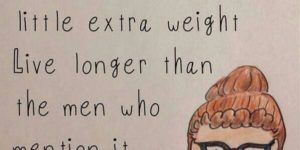 little extra weight
Live longer than
the men who
mention it